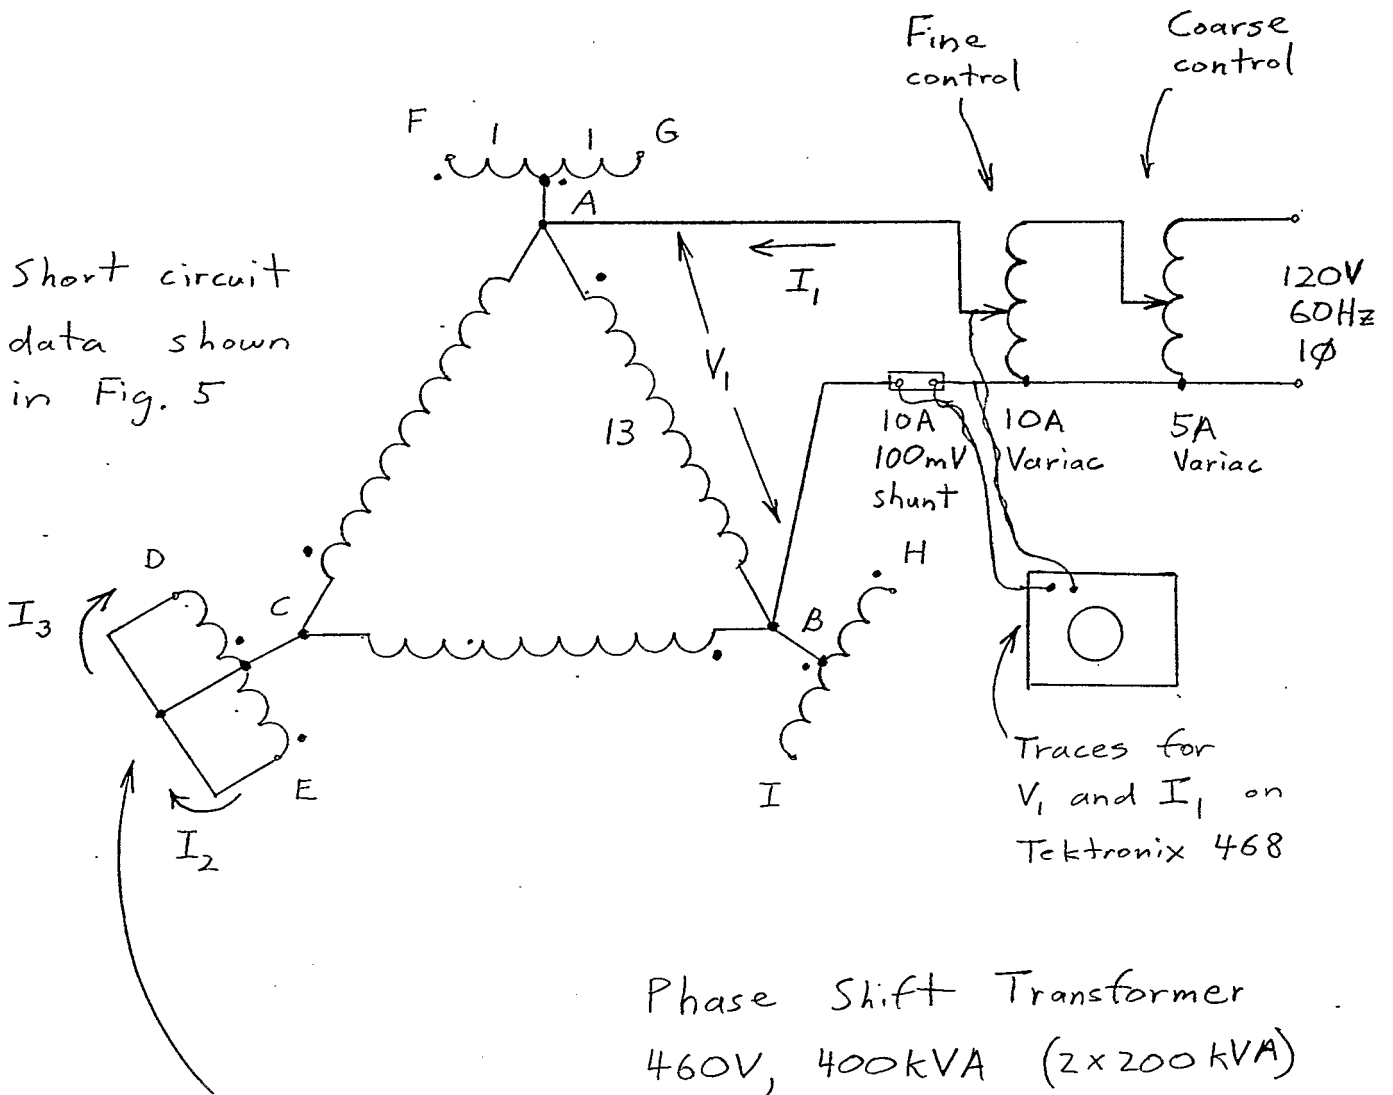 Fine
control
Coarse
control
F 1 1 G
A
Short circuit
data shown
in Fig. 5
I₁
V₁
13
120V
60Hz
1Ø
10A
100mV
shunt
10A
Variac
5A
Variac
D
C
B
H
I₃
E
I
I₂
Traces for
V₁ and I₁ on
Tektronix 468
Phase Shift Transformer
460V, 400kVA (2×200kVA)